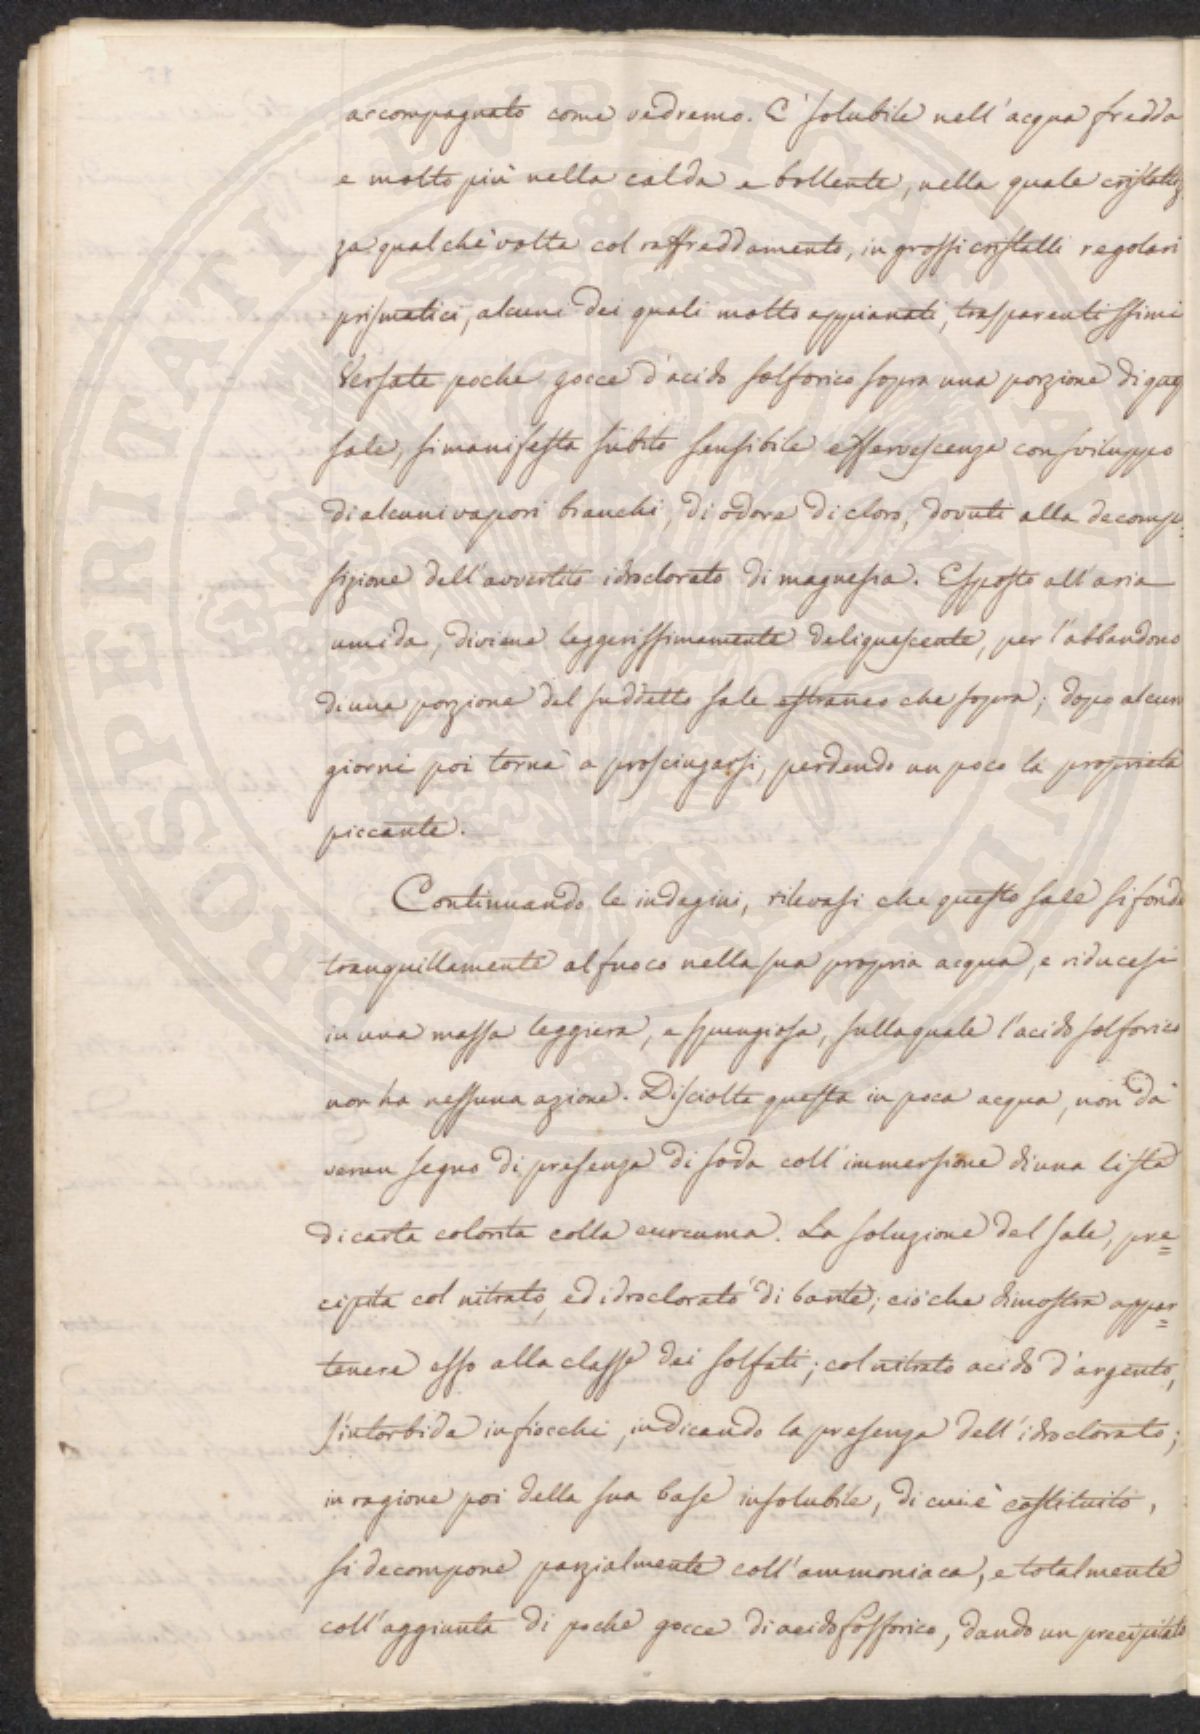 accompagnato come vedremo. E' solubile nell'acqua fredda
e molto più nella calda e bollente, nella quale cristalliz
za qualche volta col raffreddamento, in grossi cristalli regolari
prismatici, alcuni dei quali molto appianati, trasparentissimi
Versate poche gocce d'acido solforico sopra una porzione di que
sale, si manifesta subito sensibile effervescenza con sviluppo
di alcuni vapori bianchi, di odore di cloro, dovuti alla decompo=
sizione dell'avvertito idroclorato di magnesia. Esposto all'aria
umida, diviene leggerissimamente deliquescente, per l'abbandono
di una porzione del suddetto sale estraneo che sopra; dopo alcun
giorni poi torna a prosciugarsi, perdendo un poco la proprietà
piccante.
Continuando le indagini, rilevasi che questo sale si fonde
tranquillamente al fuoco nella sua propria acqua, e riducesi
in una massa leggiera, e spungiosa, sulla quale l'acido solforico
non ha nessuna azione. Disciolta questa in poca acqua, non dà
verun segno di presenza di soda coll'immersione di una lista
di carta colorita colla curcuma. La soluzione del sale, pre=
cipita col nitrato, ed idroclorato di barite; ciò che dimostra appar=
tenere esso alla classe dei solfati; col nitrato acido d'argento,
s'intorbida in fiocchi, indicando la presenza dell'idroclorato;
in ragione poi della sua base insolubile, di cui è costituito,
si decompone parzialmente coll'ammoniaca, e totalmente
coll'aggiunta di poche gocce di acido fosforico, dando un precipitato
PROSPERITATI PUBLICAE AUGENDAE